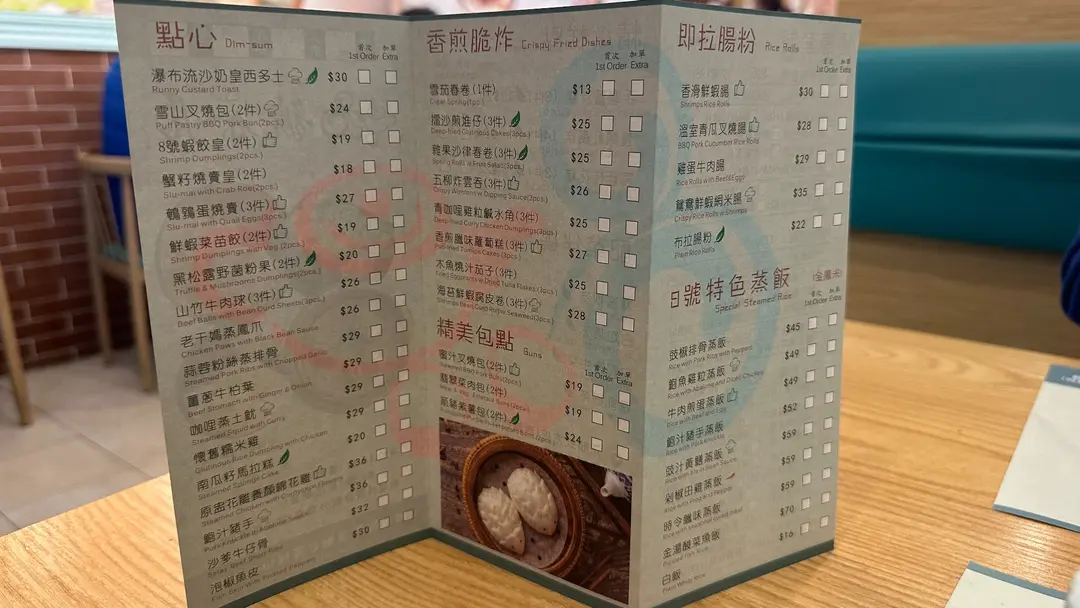 點心 Dim-sum
首次 加單
1st Order Extra
瀑布流沙奶皇西多士 $30
Runny Custard Toast
雪山叉燒包(2件) $24
Puff Pastry BBQ Pork Bun(2pcs.)
8號蝦餃皇(2件) $19
Shrimp Dumplings(2pcs.)
蟹籽燒賣皇(2件) $18
Siu-mai with Crab Roe(2pcs.)
鵪鶉蛋燒賣(3件) $27
Siu-mai with Quail Eggs(3pcs.)
鮮蝦菜苗餃(2件) $19
Shrimp Dumplings with Veg (2pcs.)
黑松露野菌粉果(2件) $20
Truffle & Mushrooms Dumplings(2pcs.)
山竹牛肉球(3件) $26
Beef Balls with Bean Curd Sheets(3pcs.)
老干媽蒸鳳爪 $26
Chicken Paws with Black Bean Sauce
蒜蓉粉絲蒸排骨 $29
Steamed Pork Ribs with Chopped Garlic
薑蔥牛柏葉 $29
Beef Stomach with Ginger & Onion
咖哩蒸土魷 $29
Steamed Squid with Curry
懷舊糯米雞 $29
Glutinous Rice Dumpling with Chicken
南瓜籽馬拉糕 $20
Steamed Sponge Cake
原盅花雕養顏錦花雞 $36
鮑汁豬手 $36
沙爹牛仔骨 $32
泡椒魚皮 $30
香煎脆炸 Crispy Fried Dishes
首次 加單
1st Order Extra
雪茄春卷(1件) $13
Cigar Spring(1pc.)
擂沙煎堆仔(3件) $25
Deep-fried Glutinous Cakes(3pcs.)
雜果沙律春卷(3件) $25
Spring Rolls w Fruit Salad(3pcs.)
五柳炸雲吞(3件) $26
Crispy Wontons w Dipping Sauce(3pcs.)
青咖哩雞粒鹹水角(3件) $25
Deep-fried Curry Chicken Dumplings(3pcs.)
香煎臘味蘿蔔糕(3件) $27
Pan-fried Turnips Cakes(3pcs.)
木魚燒汁茄子(3件) $25
海苔鮮蝦腐皮卷(3件) $28
精美包點 Buns
首次 加單
1st Order Extra
蜜汁叉燒包(2件) $19
Steamed BBQ Pork Buns(2pcs.)
翡翠菜肉包(2件) $19
$24
即拉腸粉 Rice Rolls
首次 加單
1st Order Extra
香滑鮮蝦腸 $30
Shrimps Rice Rolls
溫室青瓜叉燒腸 $28
BBQ Pork Cucumber Rice Rolls
雞蛋牛肉腸 $29
Rice Rolls with Beef&Eggs
鴛鴦鮮蝦網米腸 $35
Crispy Rice Rolls w Shrimps
布拉腸粉 $22
Plain Rice Rolls
8號特色蒸飯 (金鳳米)
Special Steamed Rice
首次 加單
1st Order Extra
豉椒排骨蒸飯 $45
Rice with Pork Ribs with Peppers
鮑魚雞粒蒸飯 $49
Rice with Abalone and Diced Chicken
牛肉煎蛋蒸飯 $49
Rice with Beef and Egg
鮑汁豬手蒸飯 $52
Rice with Pork Knuckle
豉汁黃鱔蒸飯 $59
Rice with Eels in Bean Sauce
剁椒田雞蒸飯 $59
Rice with Frog and Pepper
時令臘味蒸飯 $59
金湯酸菜魚飯 $70
Pickled Fish Rice
白飯 $16
Plain White Rice